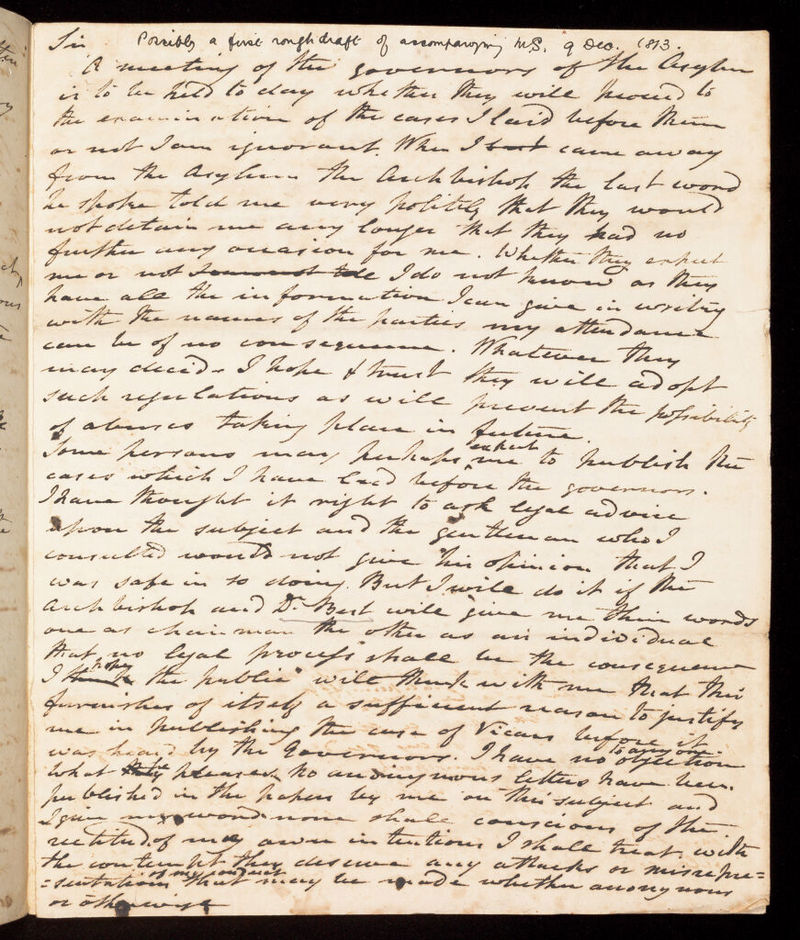 Sir Possibly a first rough draft of accompanying MS, 9 Dec. 1813.
A meeting of the governors of the Asylum
is to be held to day whether they will proceed to
the examination of the cases I laid before them
or not I am ignorant. When I came away
from the Asylum the Archbishop the last word
he spoke told me very politely that they would
not detain me any longer that they had no
further any occasion for me. Whether they expect
me or not I do not know as they
have all the information I can give in writing
with the names of the parties my attendance
can be of no consequence. Whatever they
may decide I hope & trust they will adopt
such regulations as will prevent the possibility
of abuses taking place in future.
Some persons may perhaps expect me to publish the
cases which I have laid before the governors.
I have thought it right to ask legal advice
upon the subject and the gentleman who I
consulted would not give his opinion that I
was safe in so doing. But I will do it if the
Archbishop and Dr. Best will give me their words
one as chairman the other as an individual
that no legal process shall be the consequence
I hope the public will think with me that this
furnishes of itself a sufficient reason to justify
me in publishing the case of Vicars before it
was heard by the Governors. I have no objection to any one
what pleases. No anonymous letters have been
published in the papers by me on this subject and
I give my word none shall conscious of the
rectitude of my own intentions I shall treat with
the contempt they deserve any attacks or misrepre=
=sentations of my conduct that may be made whether anonymous
or otherwise